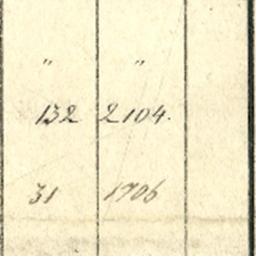 " "
132 2104.
31 1706